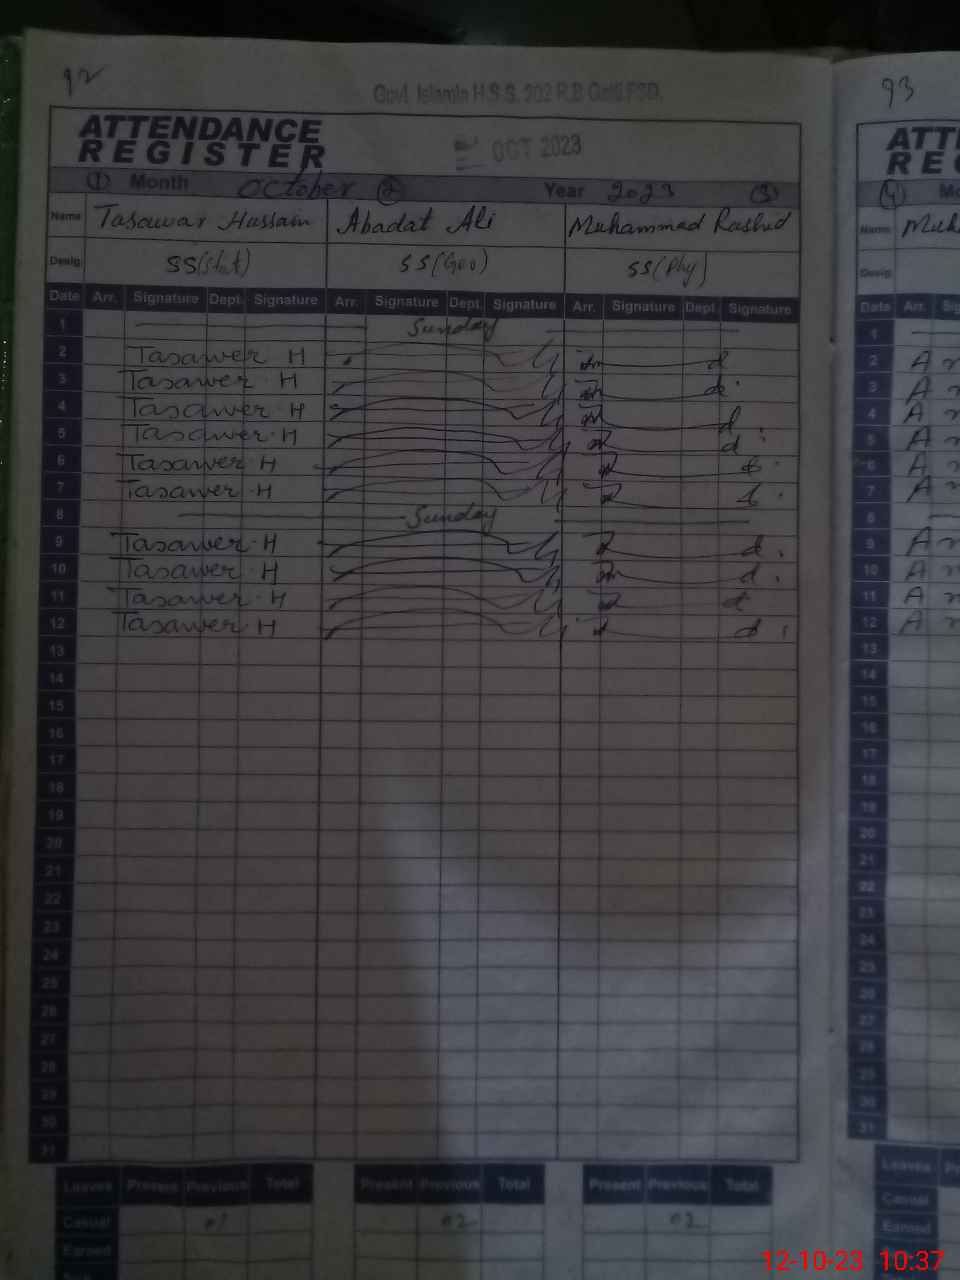 92
Govt. Islamia H.S.S. 202 R.B Gatti FSD.
ATTENDANCE
REGISTER
OCT 2023
① Month October ② Year 2023 ③
Name Tasawar Hussain Abadat Ali Muhammad Rashid
Desig. SS(Stat) SS(Geo) SS(Phy)
Date Arr. Signature Dept. Signature Arr. Signature Dept. Signature Arr. Signature Dept Signature
1 Sunday
2 Tasawer H
3 Tasawer H
4 Tasawer H
5 Tasawer H
6 Tasawer H
7 Tasawer H
8 Sunday
9 Tasawer H
10 Tasawer H
11 Tasawer H
12 Tasawer H
13
14
15
16
17
18
19
20
21
22
23
24
25
26
27
28
29
30
31
Leaves Present Previous Total Present Previous Total Present Previous Total
Casual 02 02
Earned
93
ATT
RE
④ Mo
Name Muh
Desig.
Date Arr. Sig
1
2 A
3 A
4 A
5 A
6 A
7 A
8
9 A
10 A
11 A
12 A
13
14
15
16
17
18
19
20
21
22
23
24
25
26
27
28
29
30
31
Leaves Pr
Casual
Earned
12-10-23 10:37